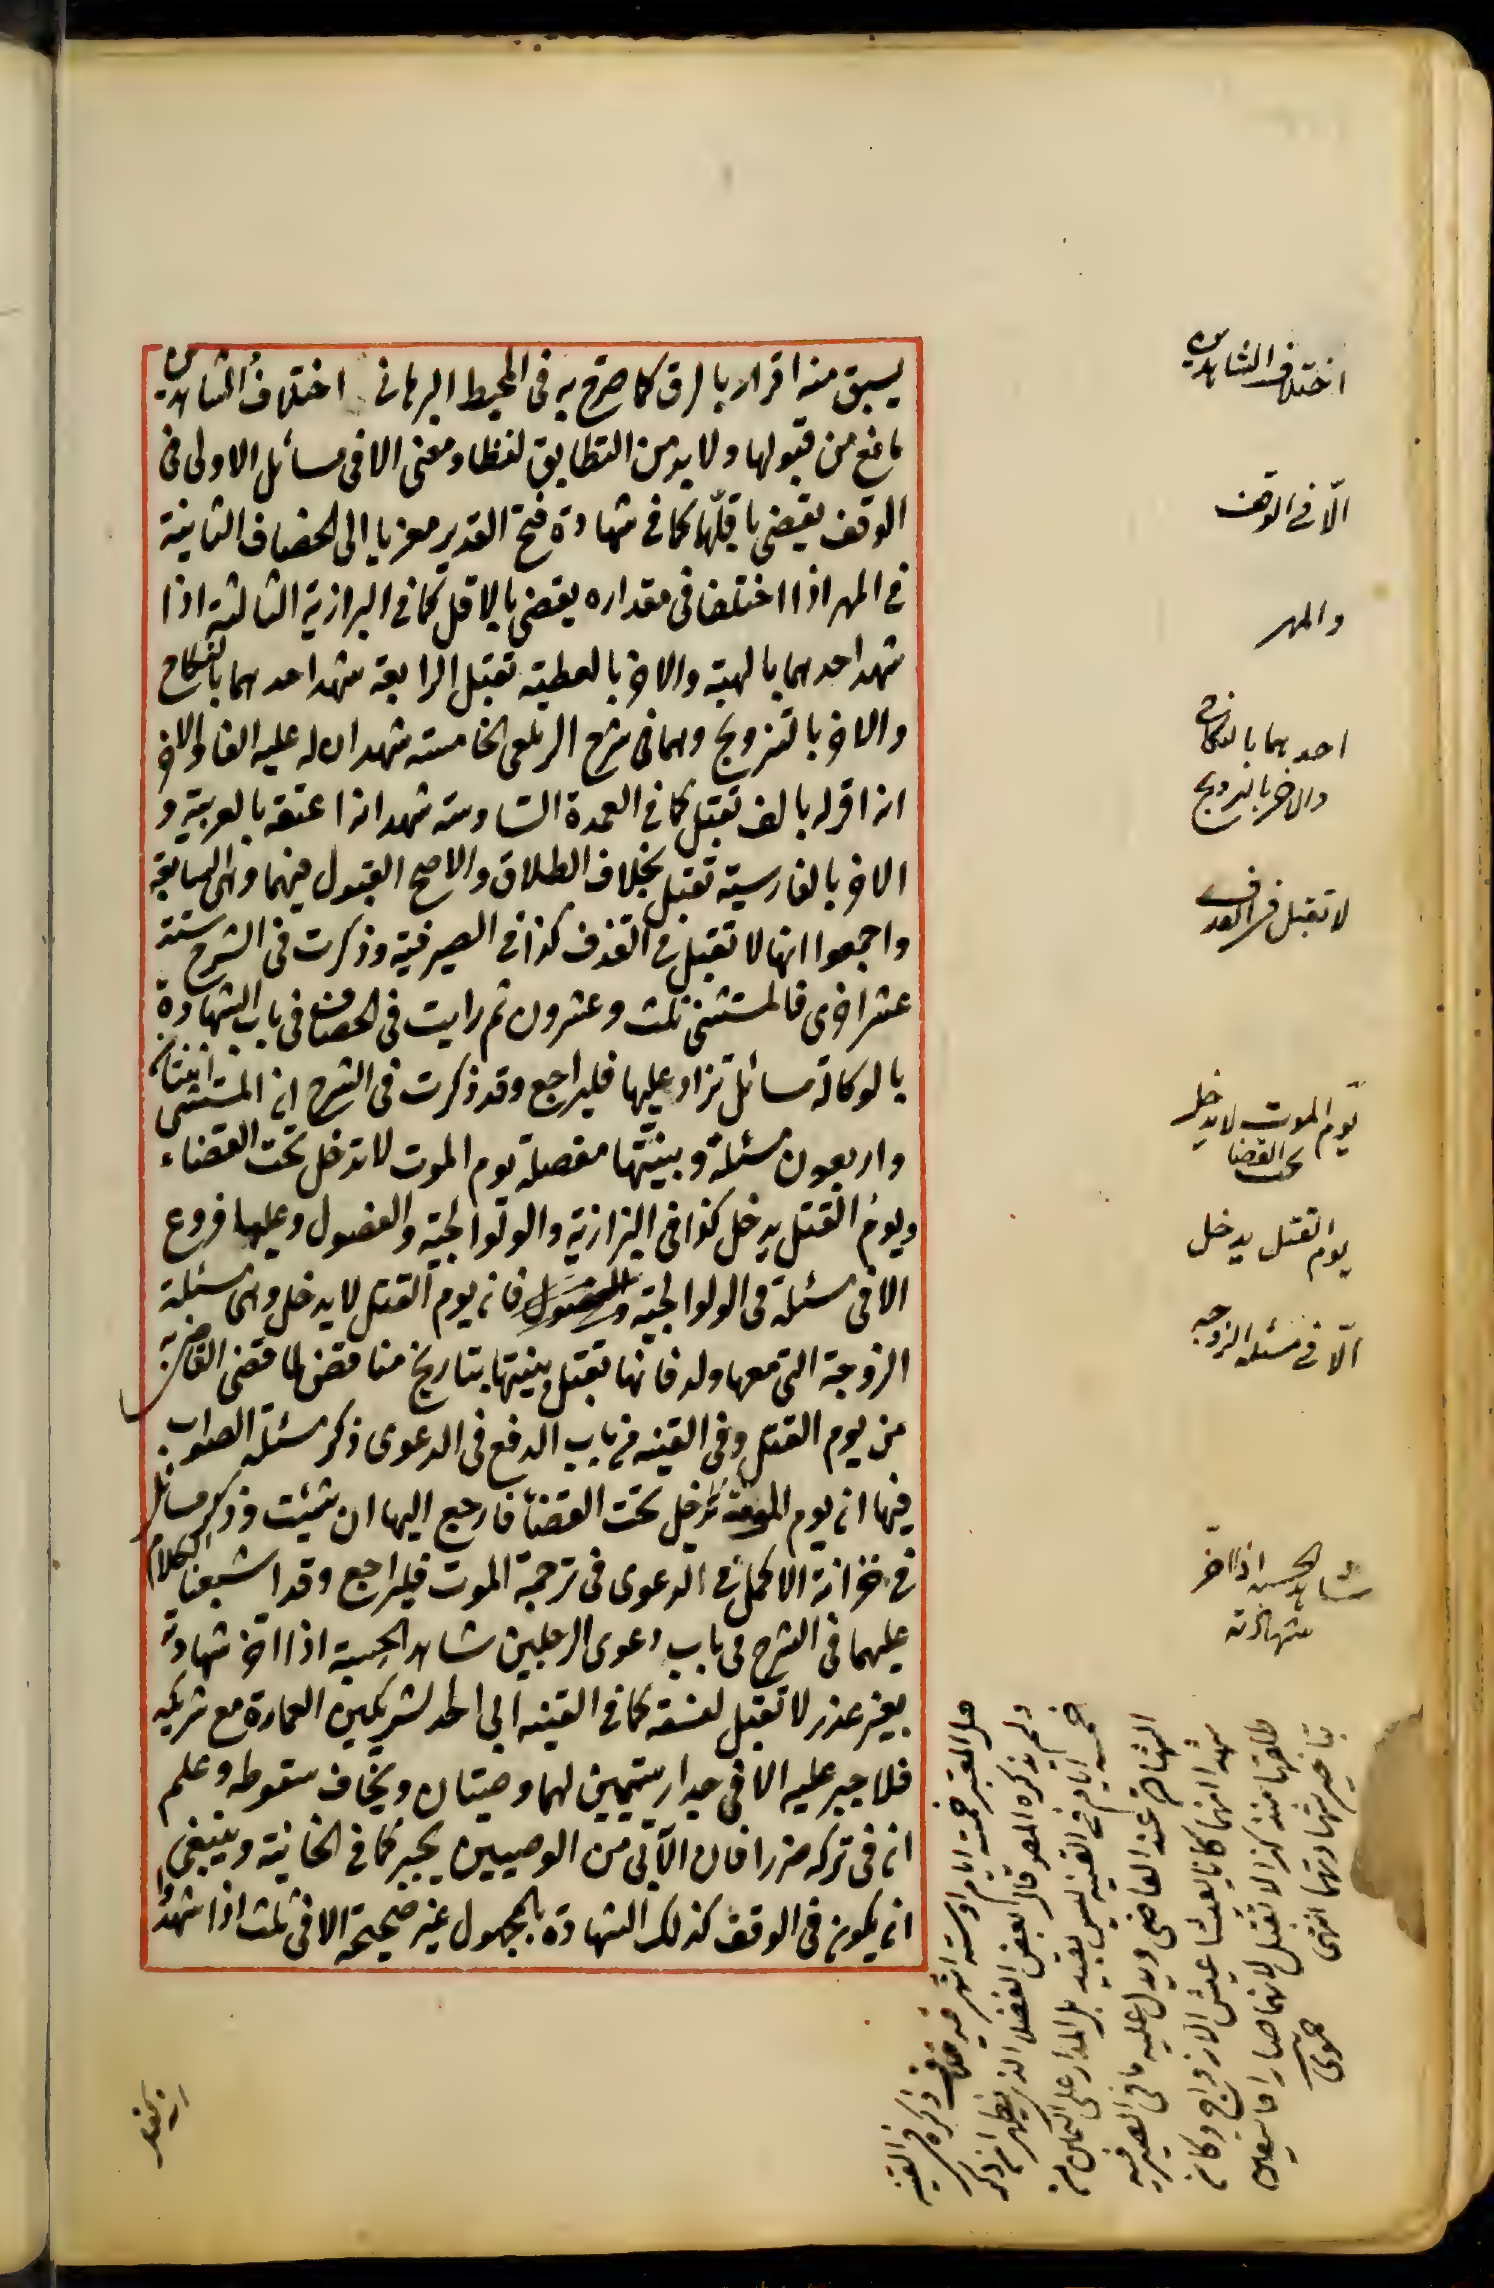 يسبق منه اقرار بالرق كما صرح به فى المحيط البرهانى اختلاف الشاهدين
مانع من قبولها ولا بد من التطابق لفظا ومعنى الا فى مسائل الاولى فى
الوقف يقضى باقلّها كما فى شهادة فتح القدير معزيا الى الخصاف الثانية
فى المهر اذا اختلفا فى مقداره يقضى بالاقل كما فى البزازية الثالثة اذا
شهد احدهما بالهبة والاخر بالعطية تقبل الرابعة شهد احدهما بالنكاح
والاخر بالتزويج وهما فى شرح الزيلعى الخامسة شهد ان له عليه الفا والاخر
انه اقر له بالف تقبل كما فى العمدة السادسة شهد انه اعتقه بالعربية و
الاخر بالفارسية تقبل بخلاف الطلاق والاصح القبول فيهما وهى السابعة
واجمعوا انها لا تقبل فى القذف كذا فى الصيرفية وذكرت فى الشرح ستة
عشر اخرى فالمستثنى ثلث وعشرون ثم رايت فى الخصاف فى باب الشهادة
بالوكالة مسائل تزاد عليها فليراجع وقد ذكرت فى الشرح ان المستثنى اثنتان
واربعون مسئلة وبينتها مفصلة يوم الموت لا تدخل تحت القضاء
ويوم القتل يدخل كذا فى البزازية والولوالجية والفصول وعليها فروع
الا فى مسئلة فى الولوالجية فان يوم القتل لا يدخل وهى مسئلة
الزوجة التى معها ولد فانها تقبل بينتها بتاريخ مناقض لما قضى القاضى به
من يوم القتل وفى القنيه من باب الدفع فى الدعوى ذكر مسئلة الصواب
فيها ان يوم الموت يدخل تحت القضاء فارجع اليها ان شئت وذكر مسائل
فى خزانة الاكمل فى الدعوى فى ترجمة الموت فليراجع وقد اشبعنا الكلام
عليهما فى الشرح فى باب دعوى الرجلين شاهد الحسبة اذا اخر شهادته
بغير عذر لا تقبل لفسقه كما فى القنيه ابى احد الشريكين العمارة مع شريكه
فلا جبر عليه الا فى جدار يتيمين لهما وصيتان ويخاف سقوطه وعلم
ان فى تركه ضررا فان الآبى من الوصيين يجبر كما فى الخانية وينبغى
ان يكون فى الوقف كذلك الشهادة بالمجهول غير صحيحة الا فى ثلث اذا شهدا
اختلاف الشاهدين
الّا فى الوقف
والمهر
احدهما بالنكاح
والاخر بالتزويج
لا تقبل فى القذف
يوم الموت لا يدخل
تحت القضا
يوم القتل يدخل
الّا فى مسئلة الزوجه
شاهد الحسبه اذا اخّر
شهادته
هل المعتبر خمسة ايام او ستة اشهر فيه خلاف ذكره فى القنيه
ولم يذكره المص قال بعض الفضلا الذى يظهر ان ذكر
خمسة ايام فى القنيه ليس بقيد بل المدار على التمكن من
الشهادة عند القاضى ويدل عليه ما فى الصيرفيه
شهدا انهما كانا يعيشا عيش الازواج وكان
طلقها منذ كذا لا تقبل لانهما صارا فاسقين
بتاخير شهادتهما انتهى
حموى